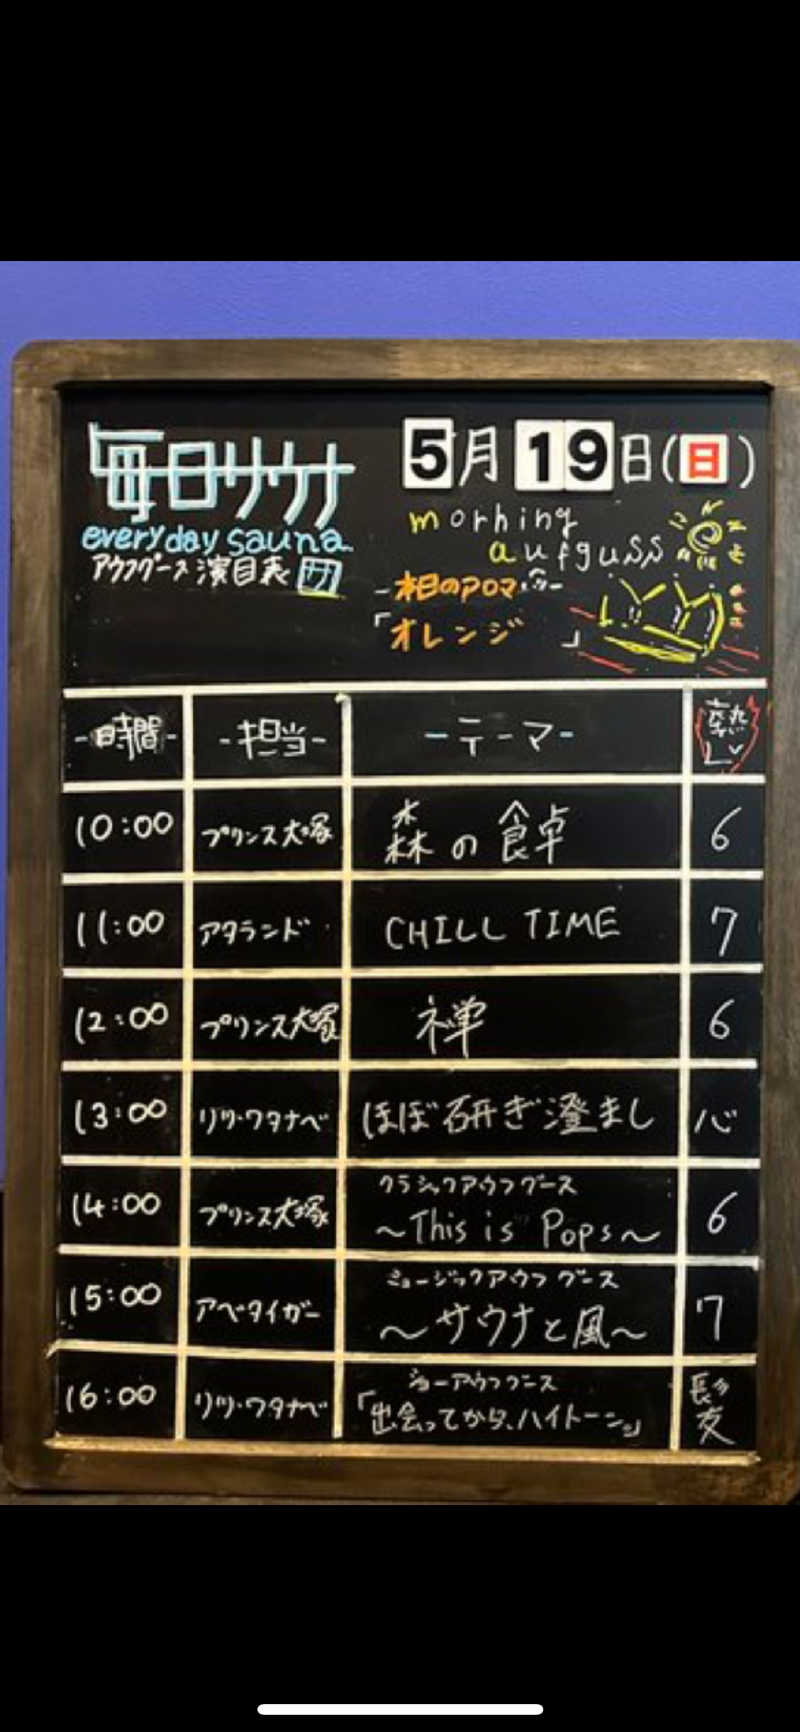 毎日サウナ
everyday sauna
アウフグース演目表
5月19日(日)
morning
aufguss
-本日のアロマ-
「オレンジ」
-時間- -担当- -テーマ- 熱レベ
10:00 プリンス大塚 森の食卓 6
11:00 アタランド CHILL TIME 7
12:00 プリンス大塚 禅 6
13:00 リツ・ワタナベ ほぼ研ぎ澄まし 心
14:00 プリンス大塚 クラシックアウフグース
～This is Pops～ 6
15:00 アベタイガー ミュージックアウフグース
～サウナと風～ 7
16:00 リツ・ワタナベ ショーアウフグース
「出会ってから、ハイトーン。」